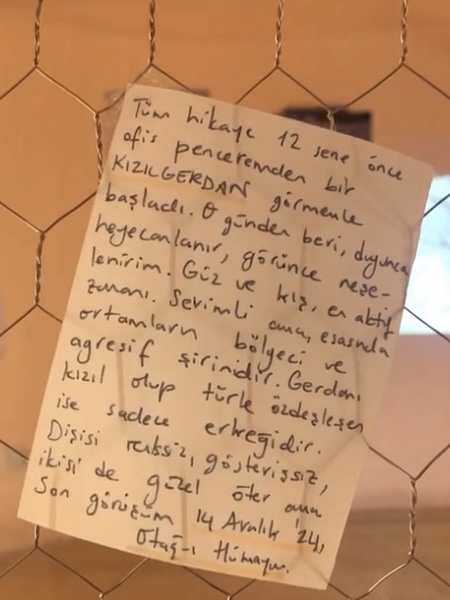 Tüm hikaye 12 sene önce
ofis penceremden bir
KIZILGERDAN görmemle
başladı. O günden beri, duyunca
heyecanlanır, görünce neşe-
lenirim. Güz ve kış, en aktif
zamanı. Sevimli ama, esasında
ortamların bölgeci ve
agresif şirinidir. Gerdanı
kızıl olup türle özdeşleşen
ise sadece erkeğidir.
Dişisi renksiz, gösterişsiz,
ikisi de güzel öter ama
Son görüşüm 14 Aralık '24,
Otağ-ı Hümayun.